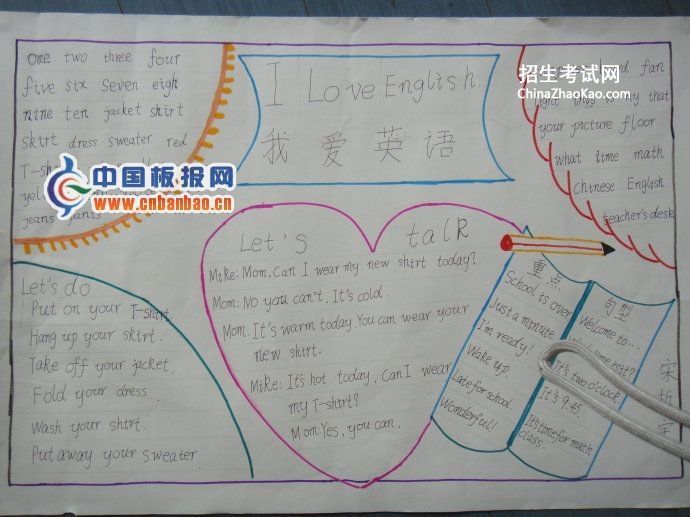 one two three four
five six seven eigh
nine ten jacket skirt
skirt dress sweater red
T-sh
yel
jeans pants
中国板报网
www.cnbanbao.cn
I Love English
我爱英语
招生考试网
ChinaZhaoKao.com
fan
light this is my that
your picture floor
what time math
Chinese English
teacher's desk
Let's do
Put on your T-shirt.
Hang up your skirt.
Take off your jacket.
Fold your dress.
Wash your shirt.
Put away your sweater
Let's talk
Mike: Mom, Can I wear my new shirt today?
Mom: No you can't. It's cold.
Mom: It's warm today. You can wear your
new skirt.
Mike: It's hot today. Can I wear
my T-shirt?
Mom: Yes, you can.
重点
School is over
Just a minute
I'm ready!
Wake up.
Late for school.
Wonderful!
句型
Welcome to....
It's two o'clock
It's 9:45.
It's time for math
class.
宋